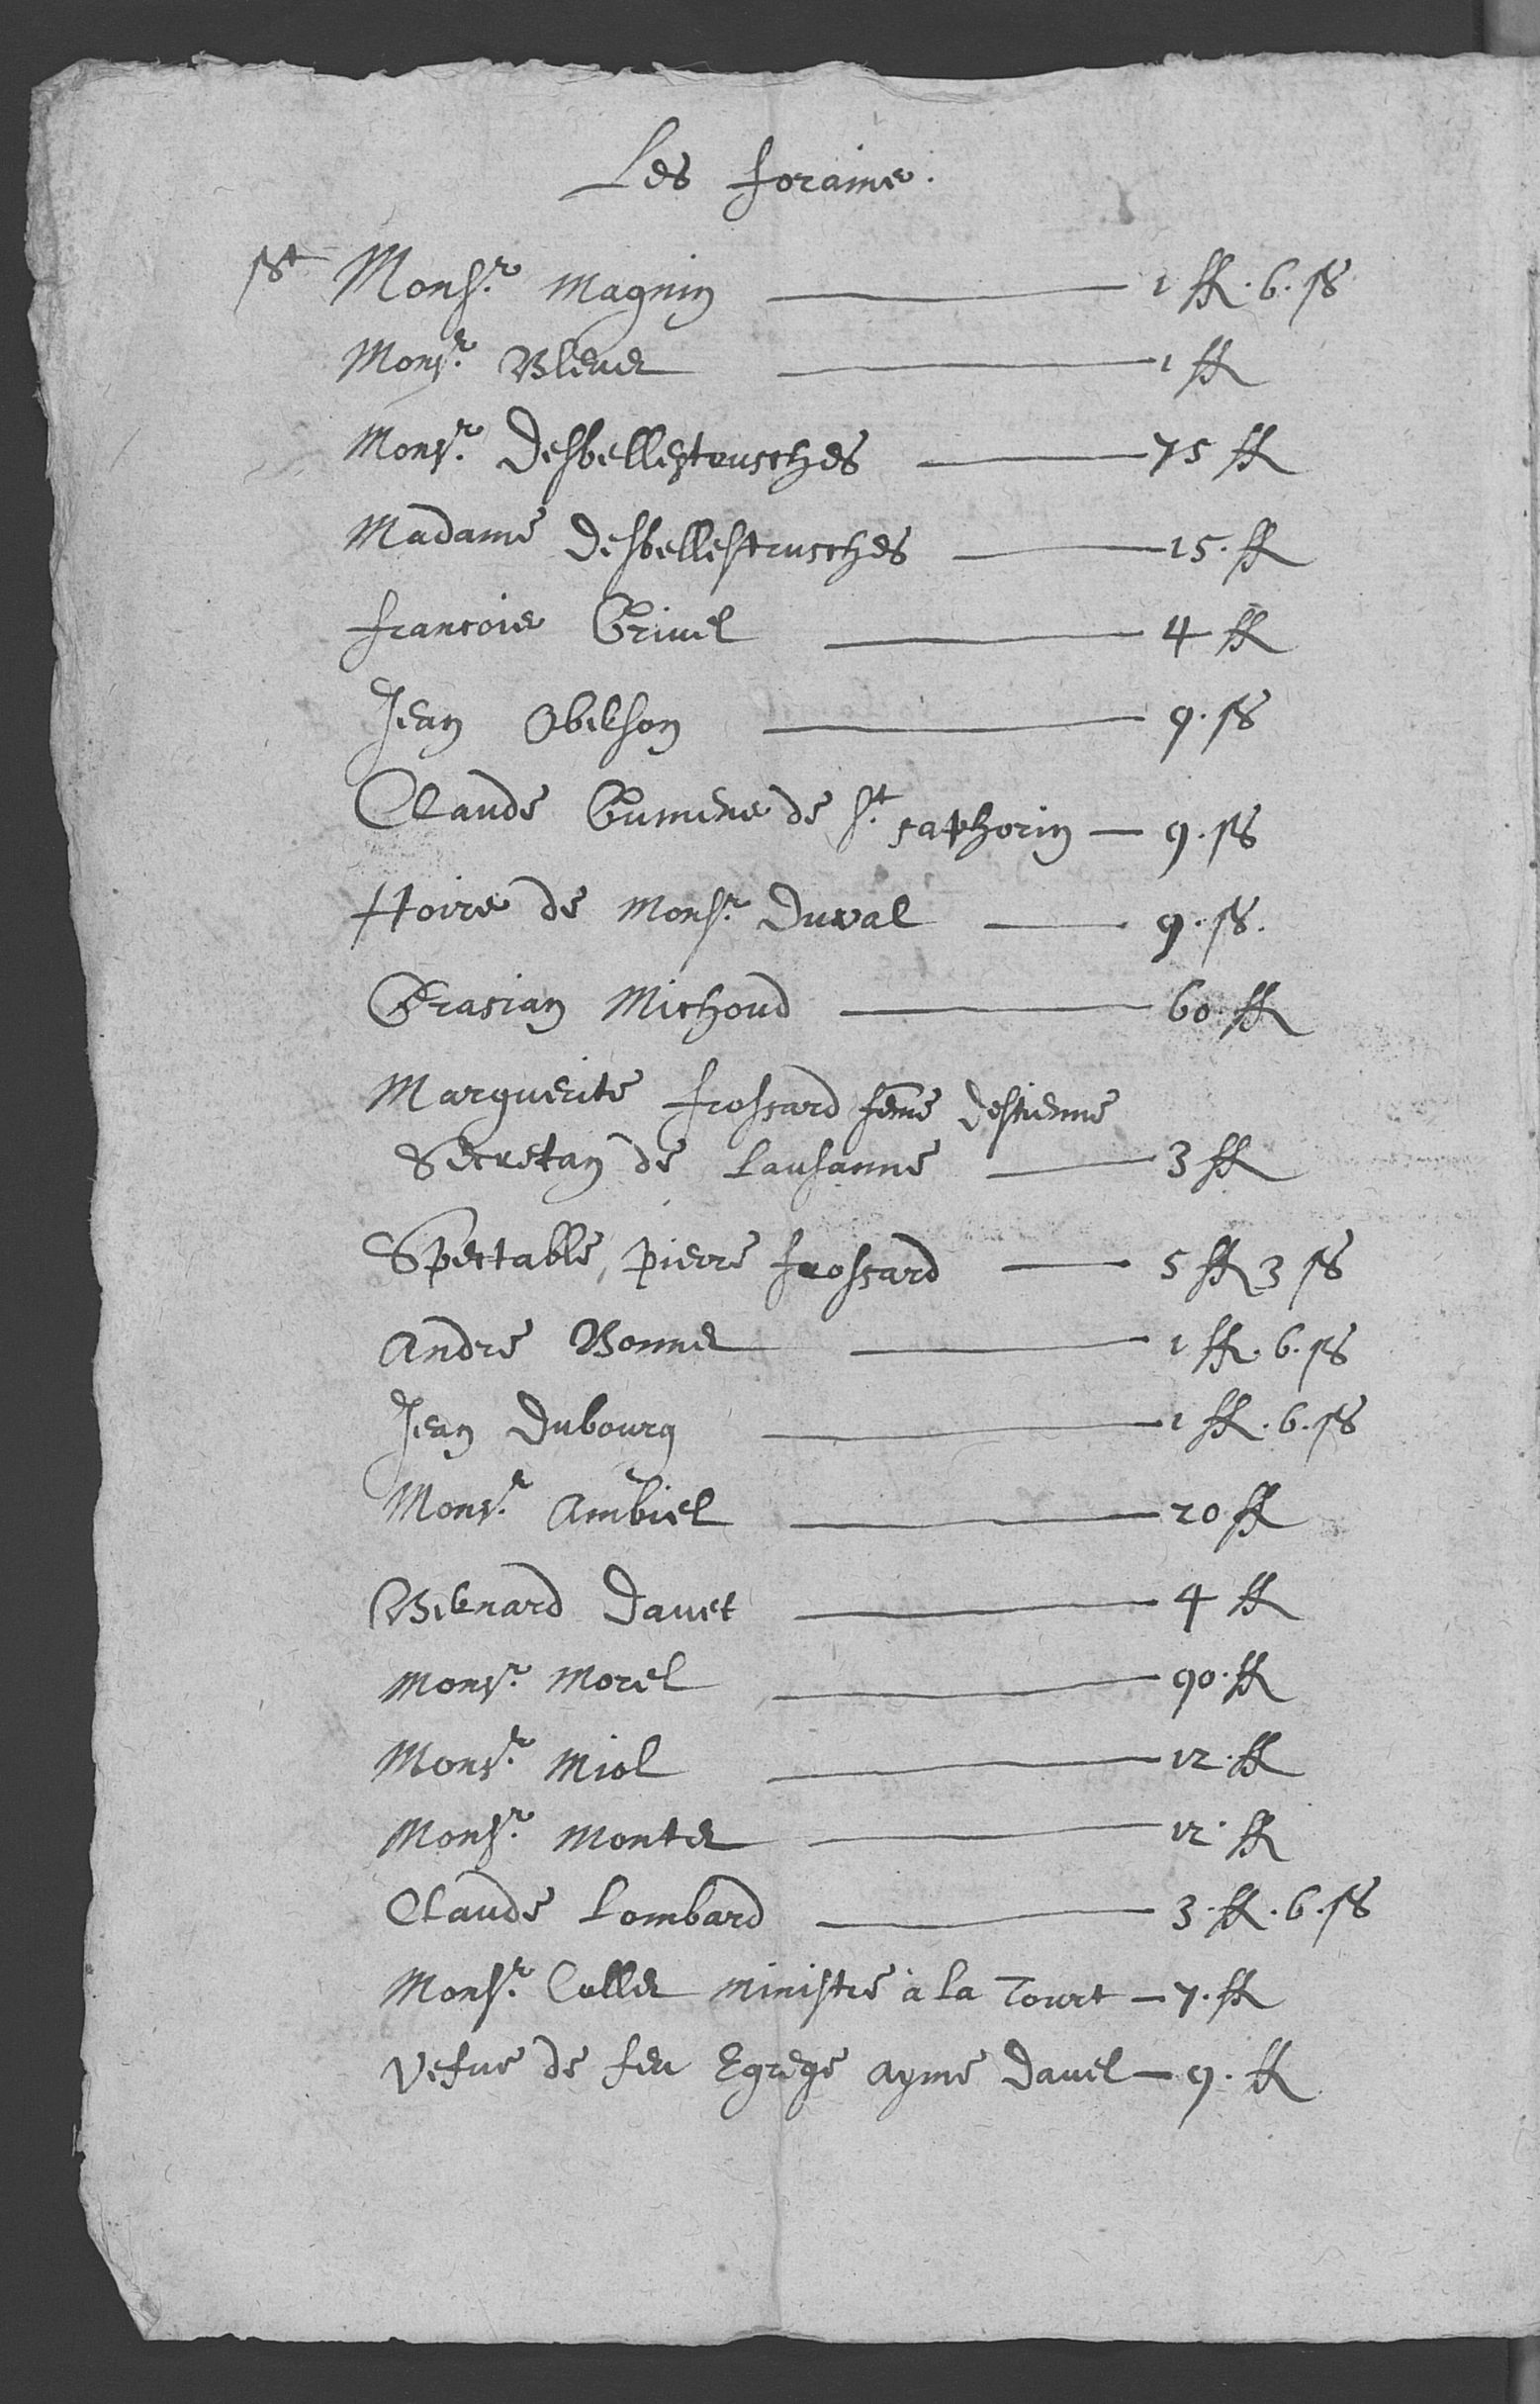 Les forains.
Monsr. Magnin — 1 ff. 6. ss
Monsr. Blevet — 1 ff
Monsr. Desbellestrusches — 75 ff
Madame Desbellestrusches — 15. ff
francois Grivel — 4 ff
Jean Obelson — 9. ss
Claude Gumens de St. saphorin — 9. ss
Hoirs de Monsr. Duval — 9. ss.
Grasian Michoud — 60 ff
Marguerite frossard feme destienne
Secretan de Lausanne — 3 ff
Spectable pierre frossard — 5 ff 3 ss
Andre Bonnet — 1 ff. 6. ss
Jean Dubourg — 1 ff. 6. ss
Monsr. Ambiel — 20 ff
Bernard Davet — 4 ff
Monsr. Morel — 90. ff
Monsr. Miol — 12. ff
Monsr. Montet — 12. ff
Claude Lombard — 3. ff. 6. ss
Monsr. Cullet ministre à la Tourt — 7. ff
Vefue de feu Egrege ayme Davel — 9. ff